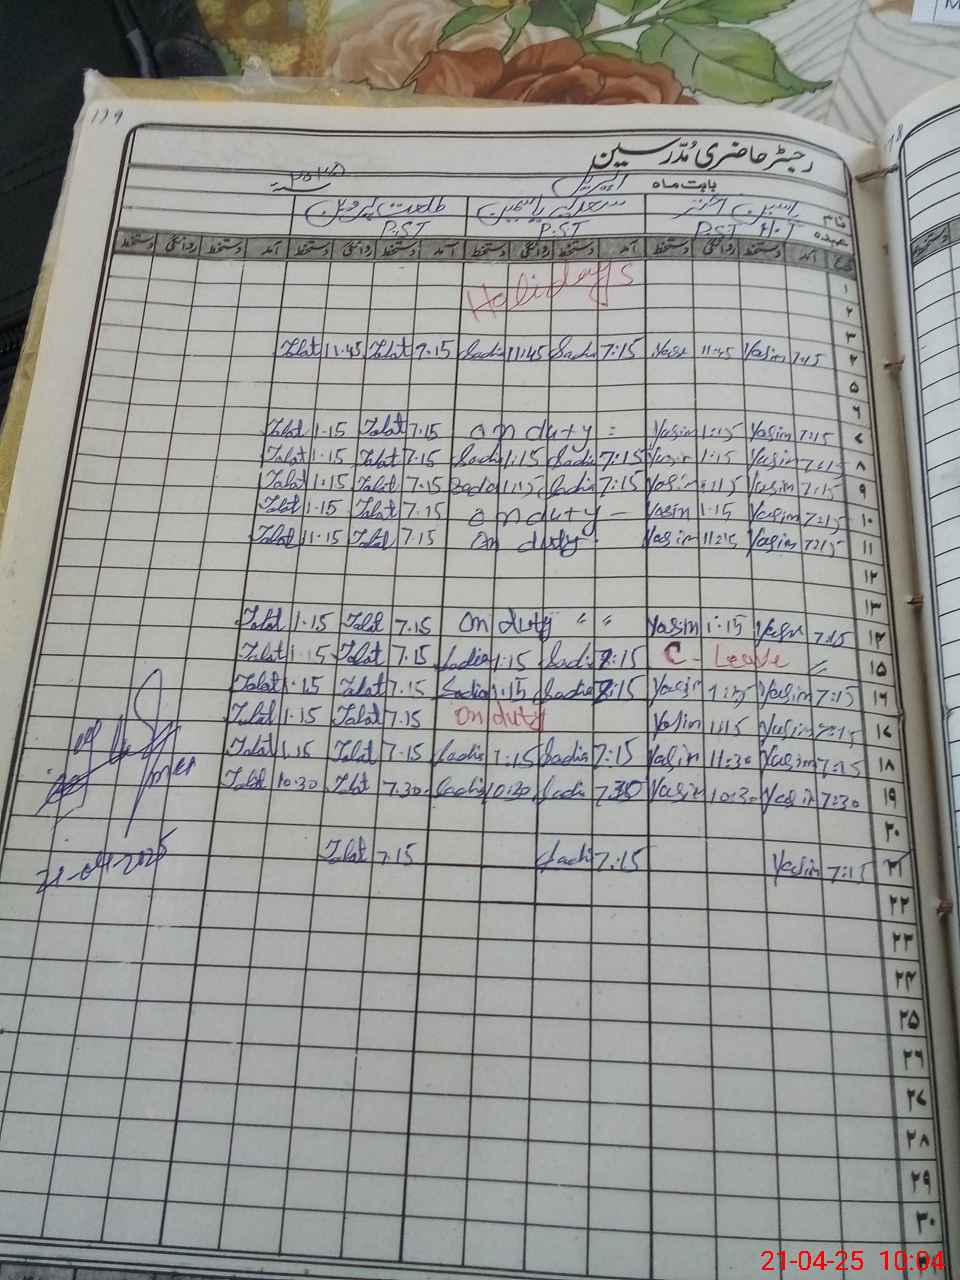 129
رجسٹر حاضری مُدرسین
بابت ماہ اپریل ۲۰۲۵
نام یاسمین اختر سعدیہ یاسمین طلعت پروین
عہدہ P.ST H.T P.ST P.ST
تاریخ آمد دستخط روانگی دستخط آمد دستخط روانگی دستخط آمد دستخط روانگی دستخط آمد دستخط روانگی دستخط
۱ Holidays
۲
۳
۴ Talat 11.45 Talat 7.15 Sadia 11:45 Sadia 7:15 Yasi 11:45 Yasim 7:15
۵
۶
۷ Talat 1.15 Talat 7.15 on duty = Yasim 1:15 Yasim 7:15
۸ Talat 1.15 Talat 7.15 Sadia 1:15 Sadia 7:15 Yasim 1:15 Yasim 7:15
۹ Talat 1.15 Talat 7.15 Sadia 1:15 Sadia 7:15 Yasim 1:15 Yasim 7:15
۱۰ Talat 1.15 Talat 7.15 on duty – Yasim 1.15 Yasim 7:15
۱۱ Talat 11.15 Talat 7.15 on duty - Yasim 11:15 Yasim 7:15
۱۲
۱۳
۱۴ Talat 1.15 Talat 7.15 on duty " " Yasim 1:15 Yasim 7:15
۱۵ Talat 1.15 Talat 7.15 Sadia 1:15 Sadia 7:15 C - Leave "
۱۶ Talat 1.15 Talat 7.15 Sadia 1:15 Sadia 7:15 Yasim 1:15 Yasim 7:15
۱۷ Talat 1.15 Talat 7.15 on duty Yasim 1:15 Yasim 7:15
۱۸ Talat 1.15 Talat 7.15 Sadia 1:15 Sadia 7:15 Yasim 11:30 Yasim 7:15
۱۹ Talat 10.30 Talat 7.30 Sadia 10:30 Sadia 7.30 Yasim 10:30 Yasim 7:30
۲۰
۲۱ Talat 7.15 Sadia 7:15 Yasim 7:15
21-04-2025
۲۲
۲۳
۲۴
۲۵
۲۶
۲۷
۲۸
۲۹
۳۰
21-04-25 10:04